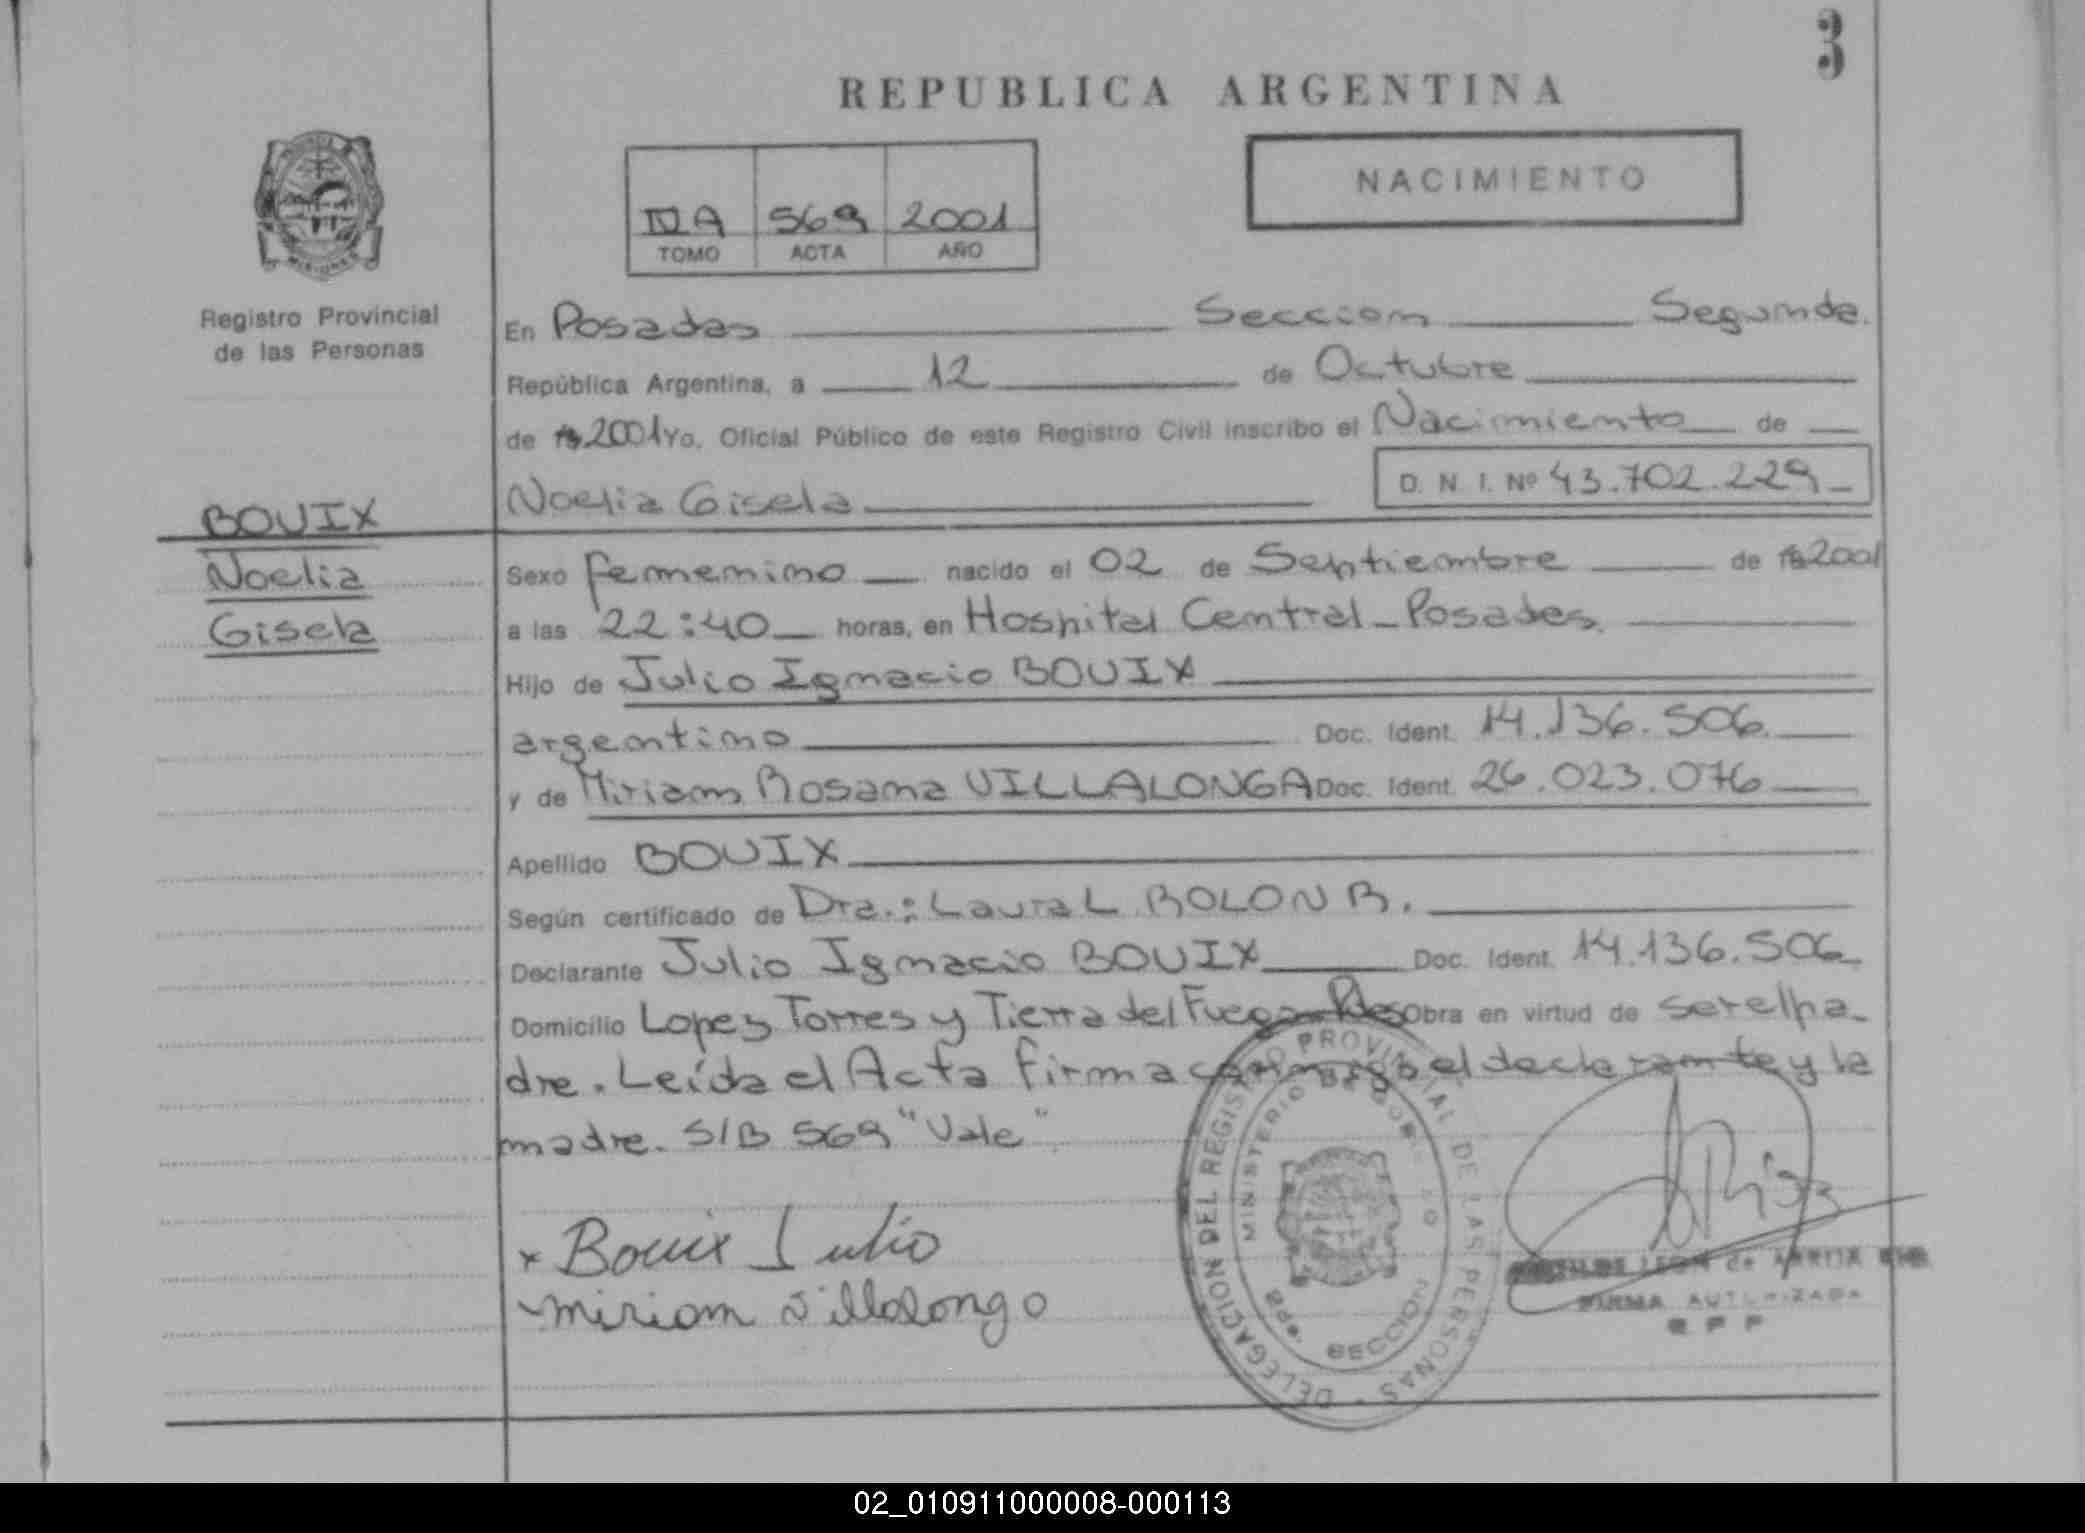 3
REPUBLICA ARGENTINA
NACIMIENTO
IV A 569 2001
TOMO ACTA AÑO
Registro Provincial
de las Personas
En Posadas Seccion Segunda.
República Argentina, a 12 de Octubre
de 2001 Yo, Oficial Público de este Registro Civil inscribo el Nacimiento de
Noelia Gisela D. N. I. Nº 43.702.229
BOUIX
Noelia
Gisela
Sexo femenino nacido el 02 de Septiembre de 2001
a las 22:40 horas, en Hospital Central - Posadas.
Hijo de Julio Ignacio BOUIX
argentino Doc. Ident. 14.136.506.
y de Miriam Rosana VILLALONGA Doc. Ident. 26.023.076
Apellido BOUIX
Según certificado de Dra.: Laura L. BOLON B.
Declarante Julio Ignacio BOUIX Doc. Ident. 14.136.506
Domicilio Lopez Torres y Tierra del Fuego Obra en virtud de ser el pa-
dre. Leída el Acta firma conmigo el declarante y la
madre. S/B 569 "Vale"
x Bouix Julio
Miriam Villalonga
DELEGACION DEL REGISTRO PROVINCIAL DE LAS PERSONAS
MINISTERIO DE GOBIERNO
SECCION
LEON de
FIRMA AUTORIZADA
02_010911000008-000113